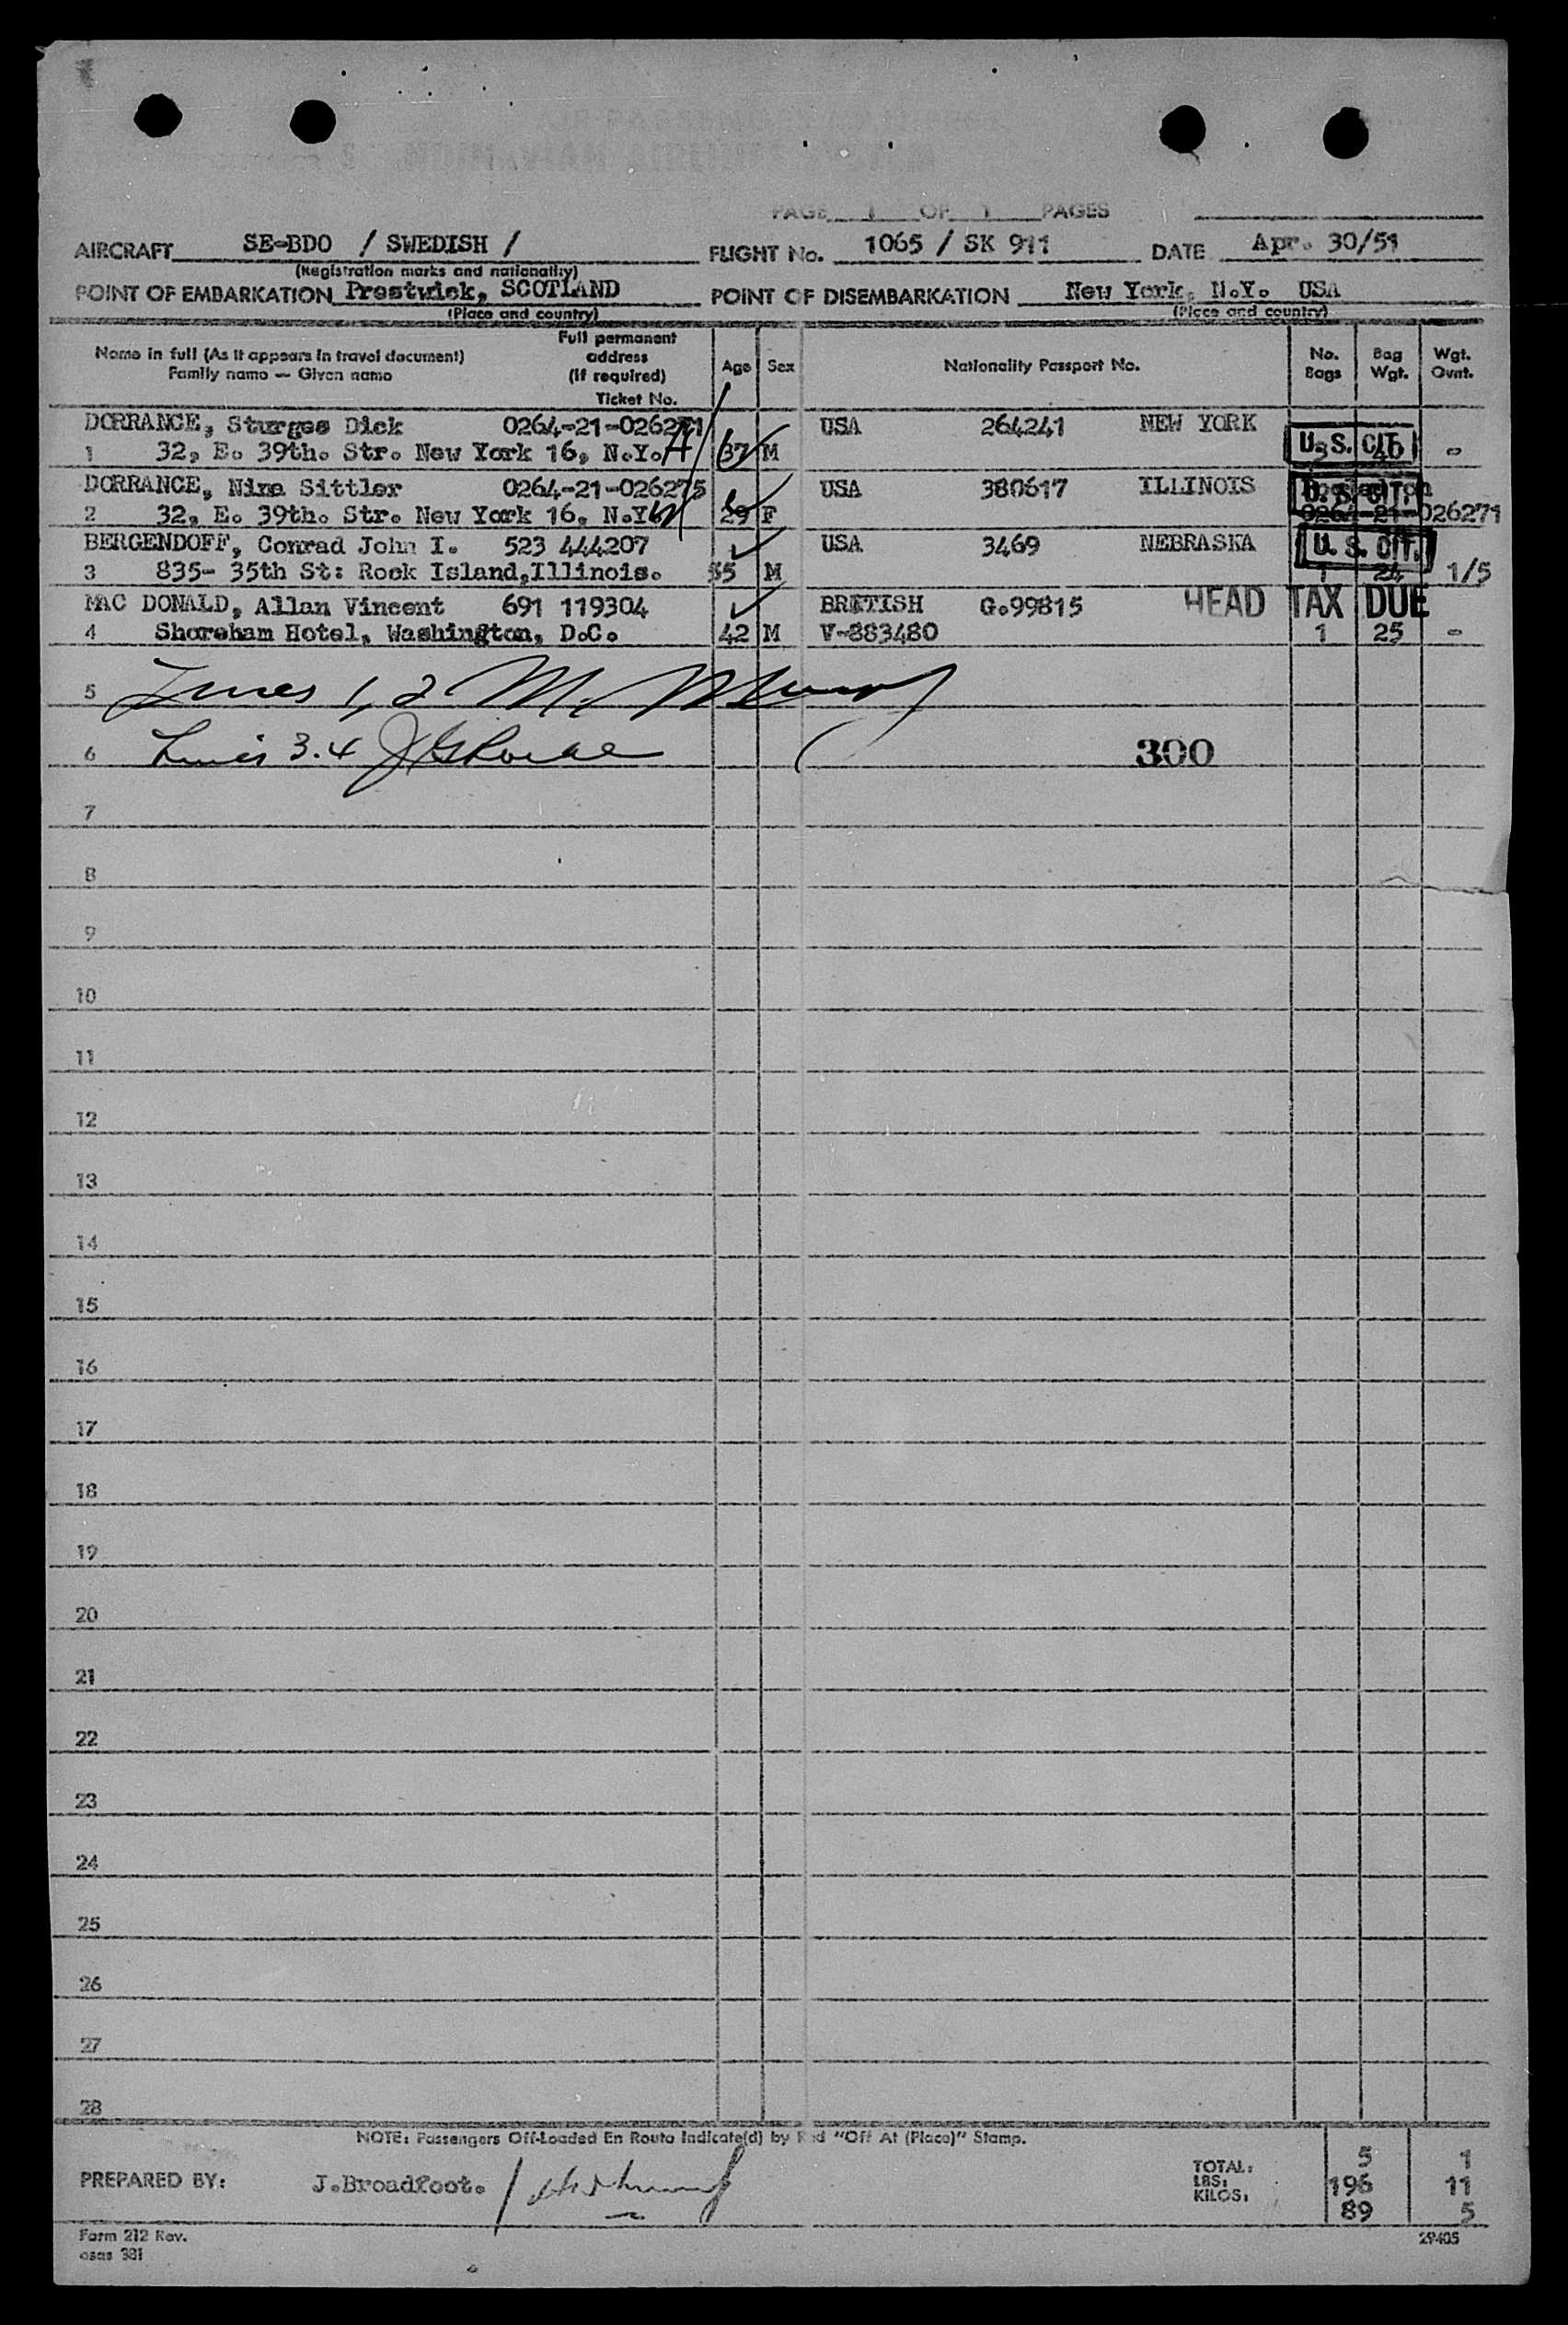 PAGE 1 OF 1 PAGES
AIRCRAFT SE-BDO / SWEDISH / FLIGHT No. 1065 / SK 911 DATE Apr. 30/51
(Registration marks and nationality)
POINT OF EMBARKATION Prestwick, SCOTLAND POINT OF DISEMBARKATION New York, N.Y. USA
(Place and country) (Place and country)
Name in full (As it appears in travel document) Family name — Given name
Full permanent address (If required) Ticket No.
Age Sex Nationality Passport No. No. Bags Bag Wgt. Wgt. Ovnt.
DORRANCE, Sturges Dick 0264-21-026271 USA 264241 NEW YORK
1 32, E. 39th. Str. New York 16, N.Y. 37 M U.S. CIT. 40 -
DORRANCE, Nina Sittler 0264-21-026275 USA 380617 ILLINOIS U.S. CIT.
2 32, E. 39th. Str. New York 16, N.Y. 29 F 0264-21-026271
BERGENDOFF, Conrad John I. 523 444207 USA 3469 NEBRASKA U. S. CIT.
3 835- 35th St: Rock Island,Illinois. 55 M 1 24 1/5
MAC DONALD, Allan Vincent 691 119304 BRITISH G.99815 HEAD TAX DUE
4 Shoreham Hotel, Washington, D.C. 42 M V-883480 1 25 -
5 Lines 1, 2
6 Lines 3.4 300
7
8
9
10
11
12
13
14
15
16
17
18
19
20
21
22
23
24
25
26
27
28
NOTE: Passengers Off-Loaded En Route Indicate(d) by Red "Off At (Place)" Stamp.
PREPARED BY: J.Broadfoot. /
TOTAL: 5 1
LBS: 196 11
KILOS: 89 5
Form 212 Rev. 29405
osas 381